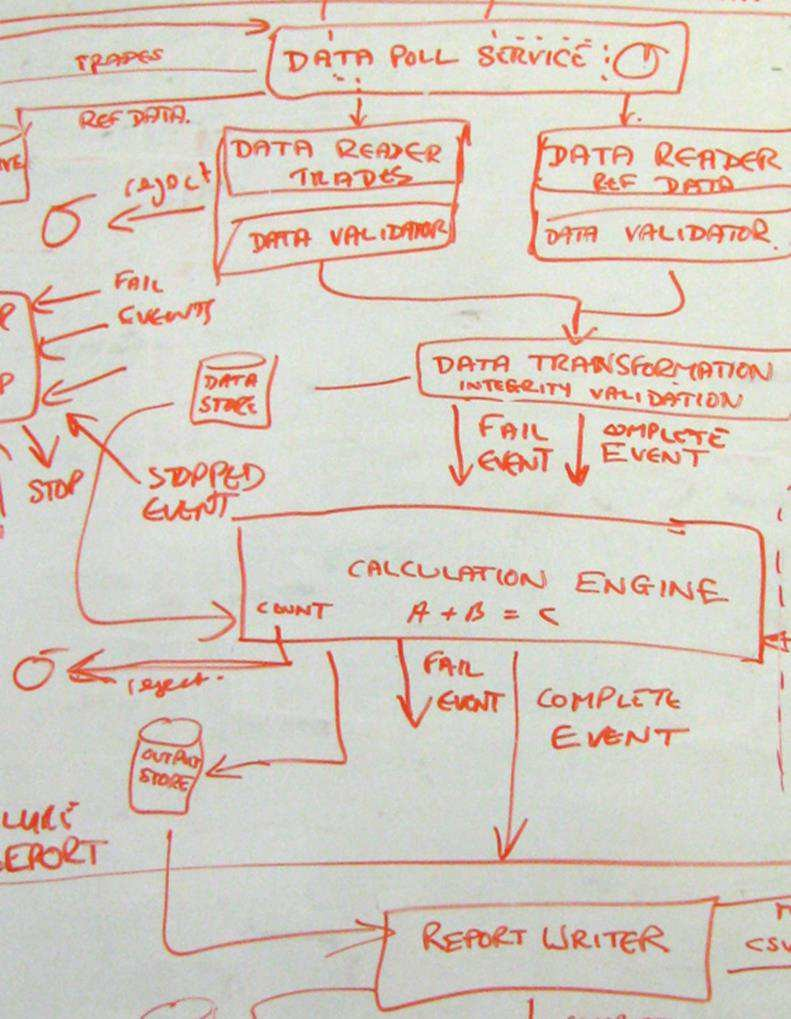 TRADES
DATA POLL SERVICE
REF DATA.
DATA READER
TRADES
DATA VALIDATOR
DATA READER
REF DATA
DATA VALIDATOR
reject
FAIL
EVENTS
DATA
STORE
DATA TRANSFORMATION
INTEGRITY VALIDATION
FAIL
EVENT
COMPLETE
EVENT
STOP
STOPPED
EVENT
CALCULATION ENGINE
COUNT
A + B = C
reject
FAIL
EVENT
COMPLETE
EVENT
OUTPUT
STORE
REPORT WRITER
CSV